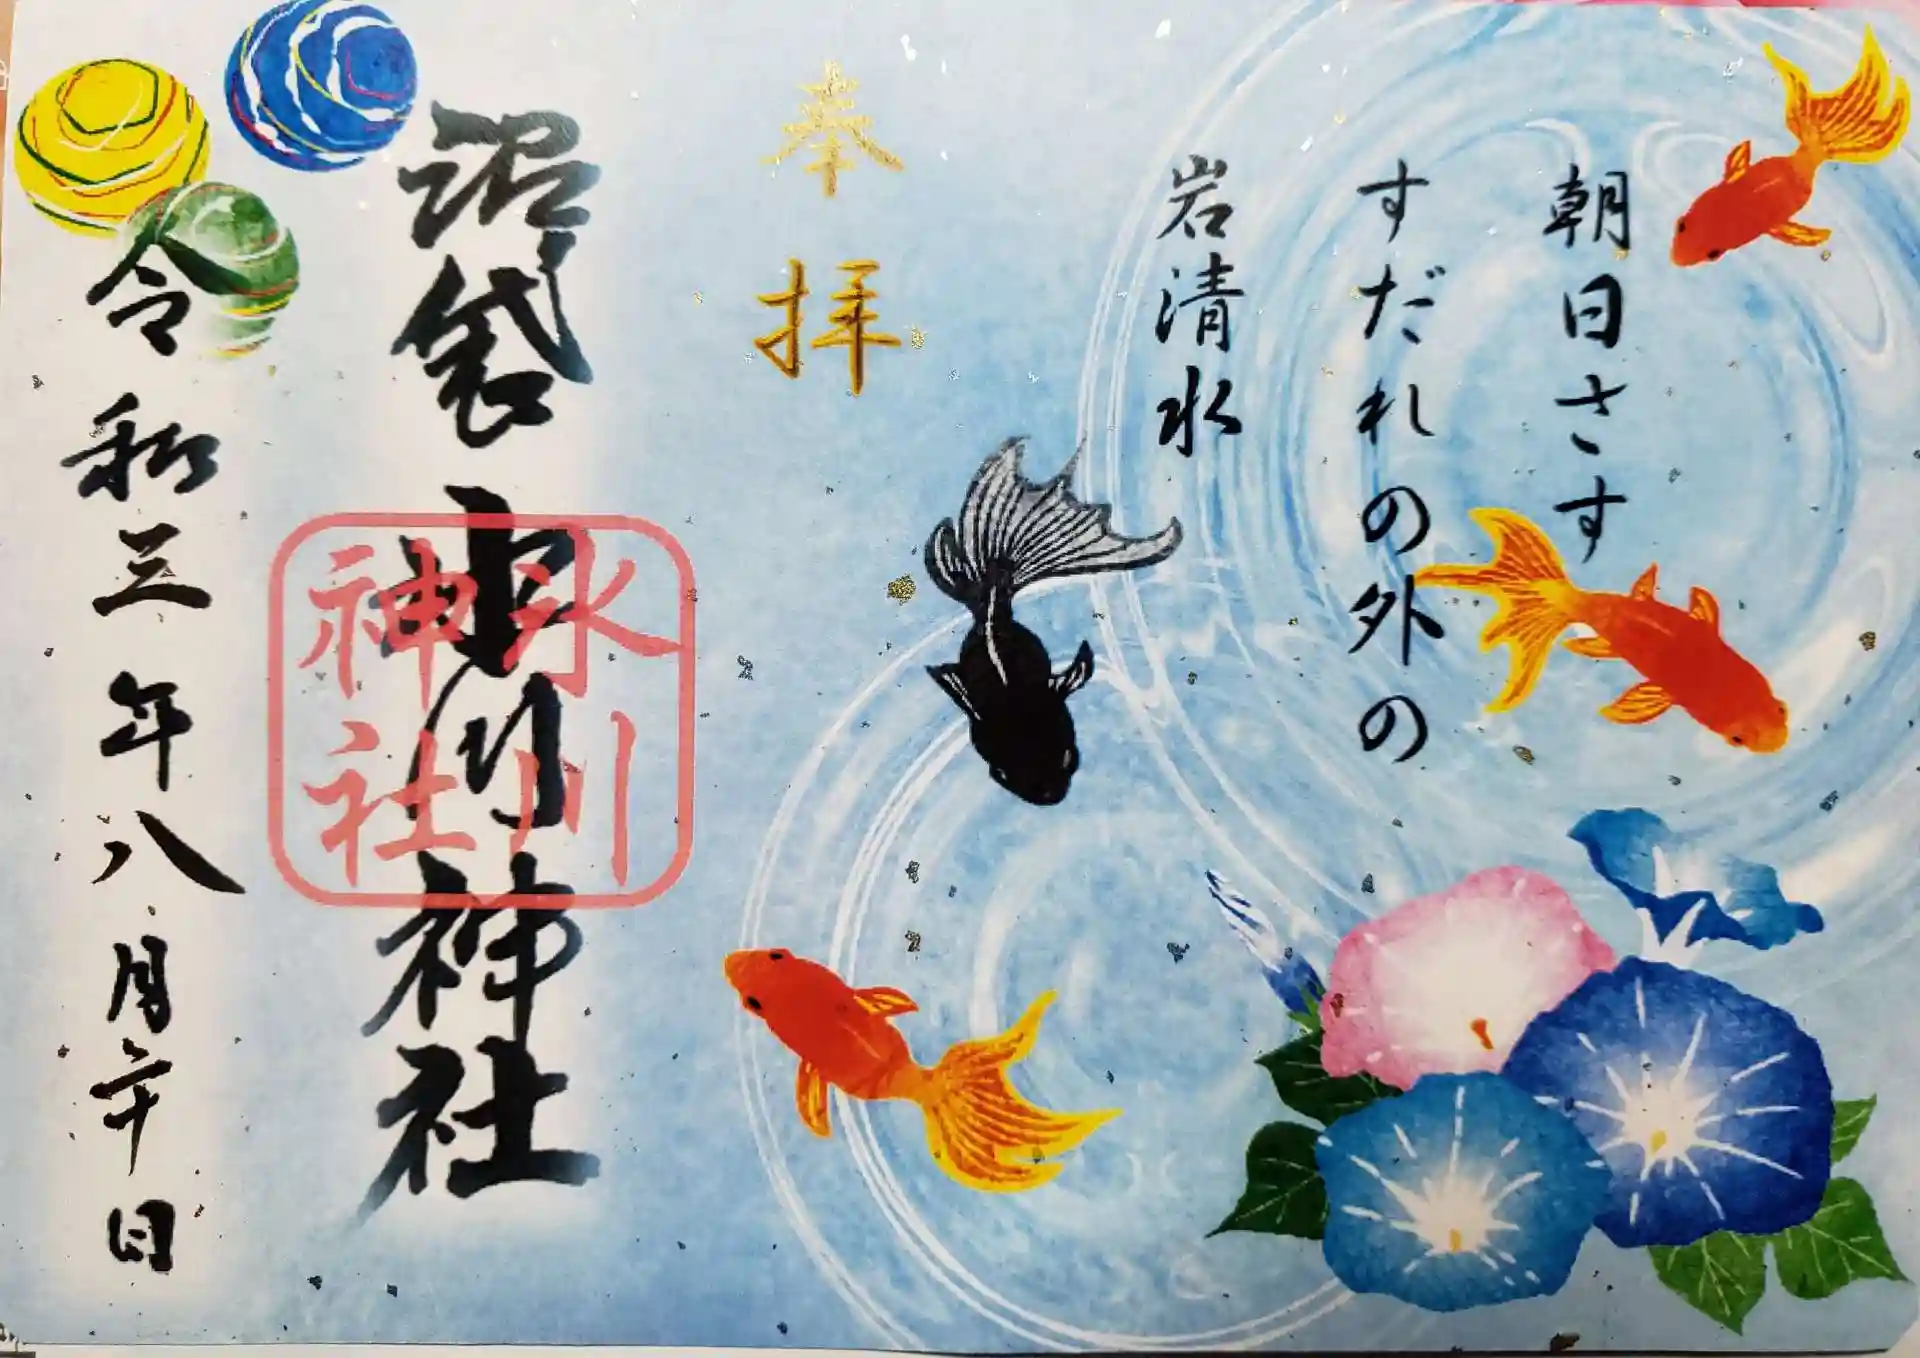 朝日さす
すだれの外の
岩清水
奉拝
沼袋氷川神社
氷川
神社
令和三年八月二十日